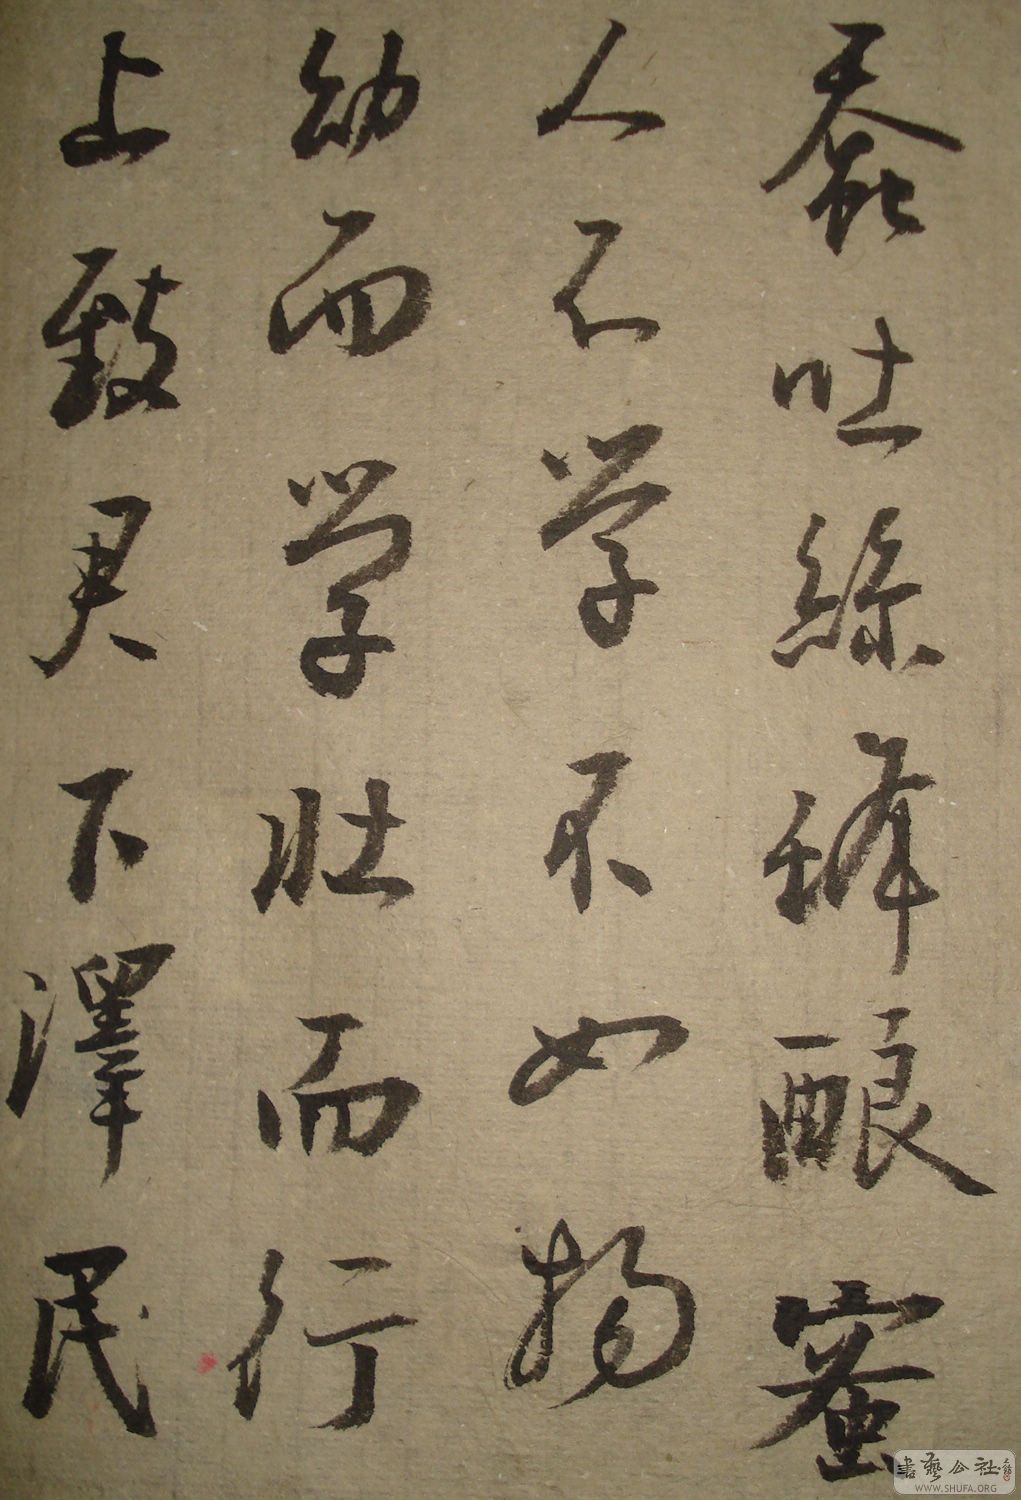 蚕吐絲蜂酿蜜
人不学不如物
幼而学壮而行
上致君下澤民
書藝公社
WWW.SHUFA.ORG